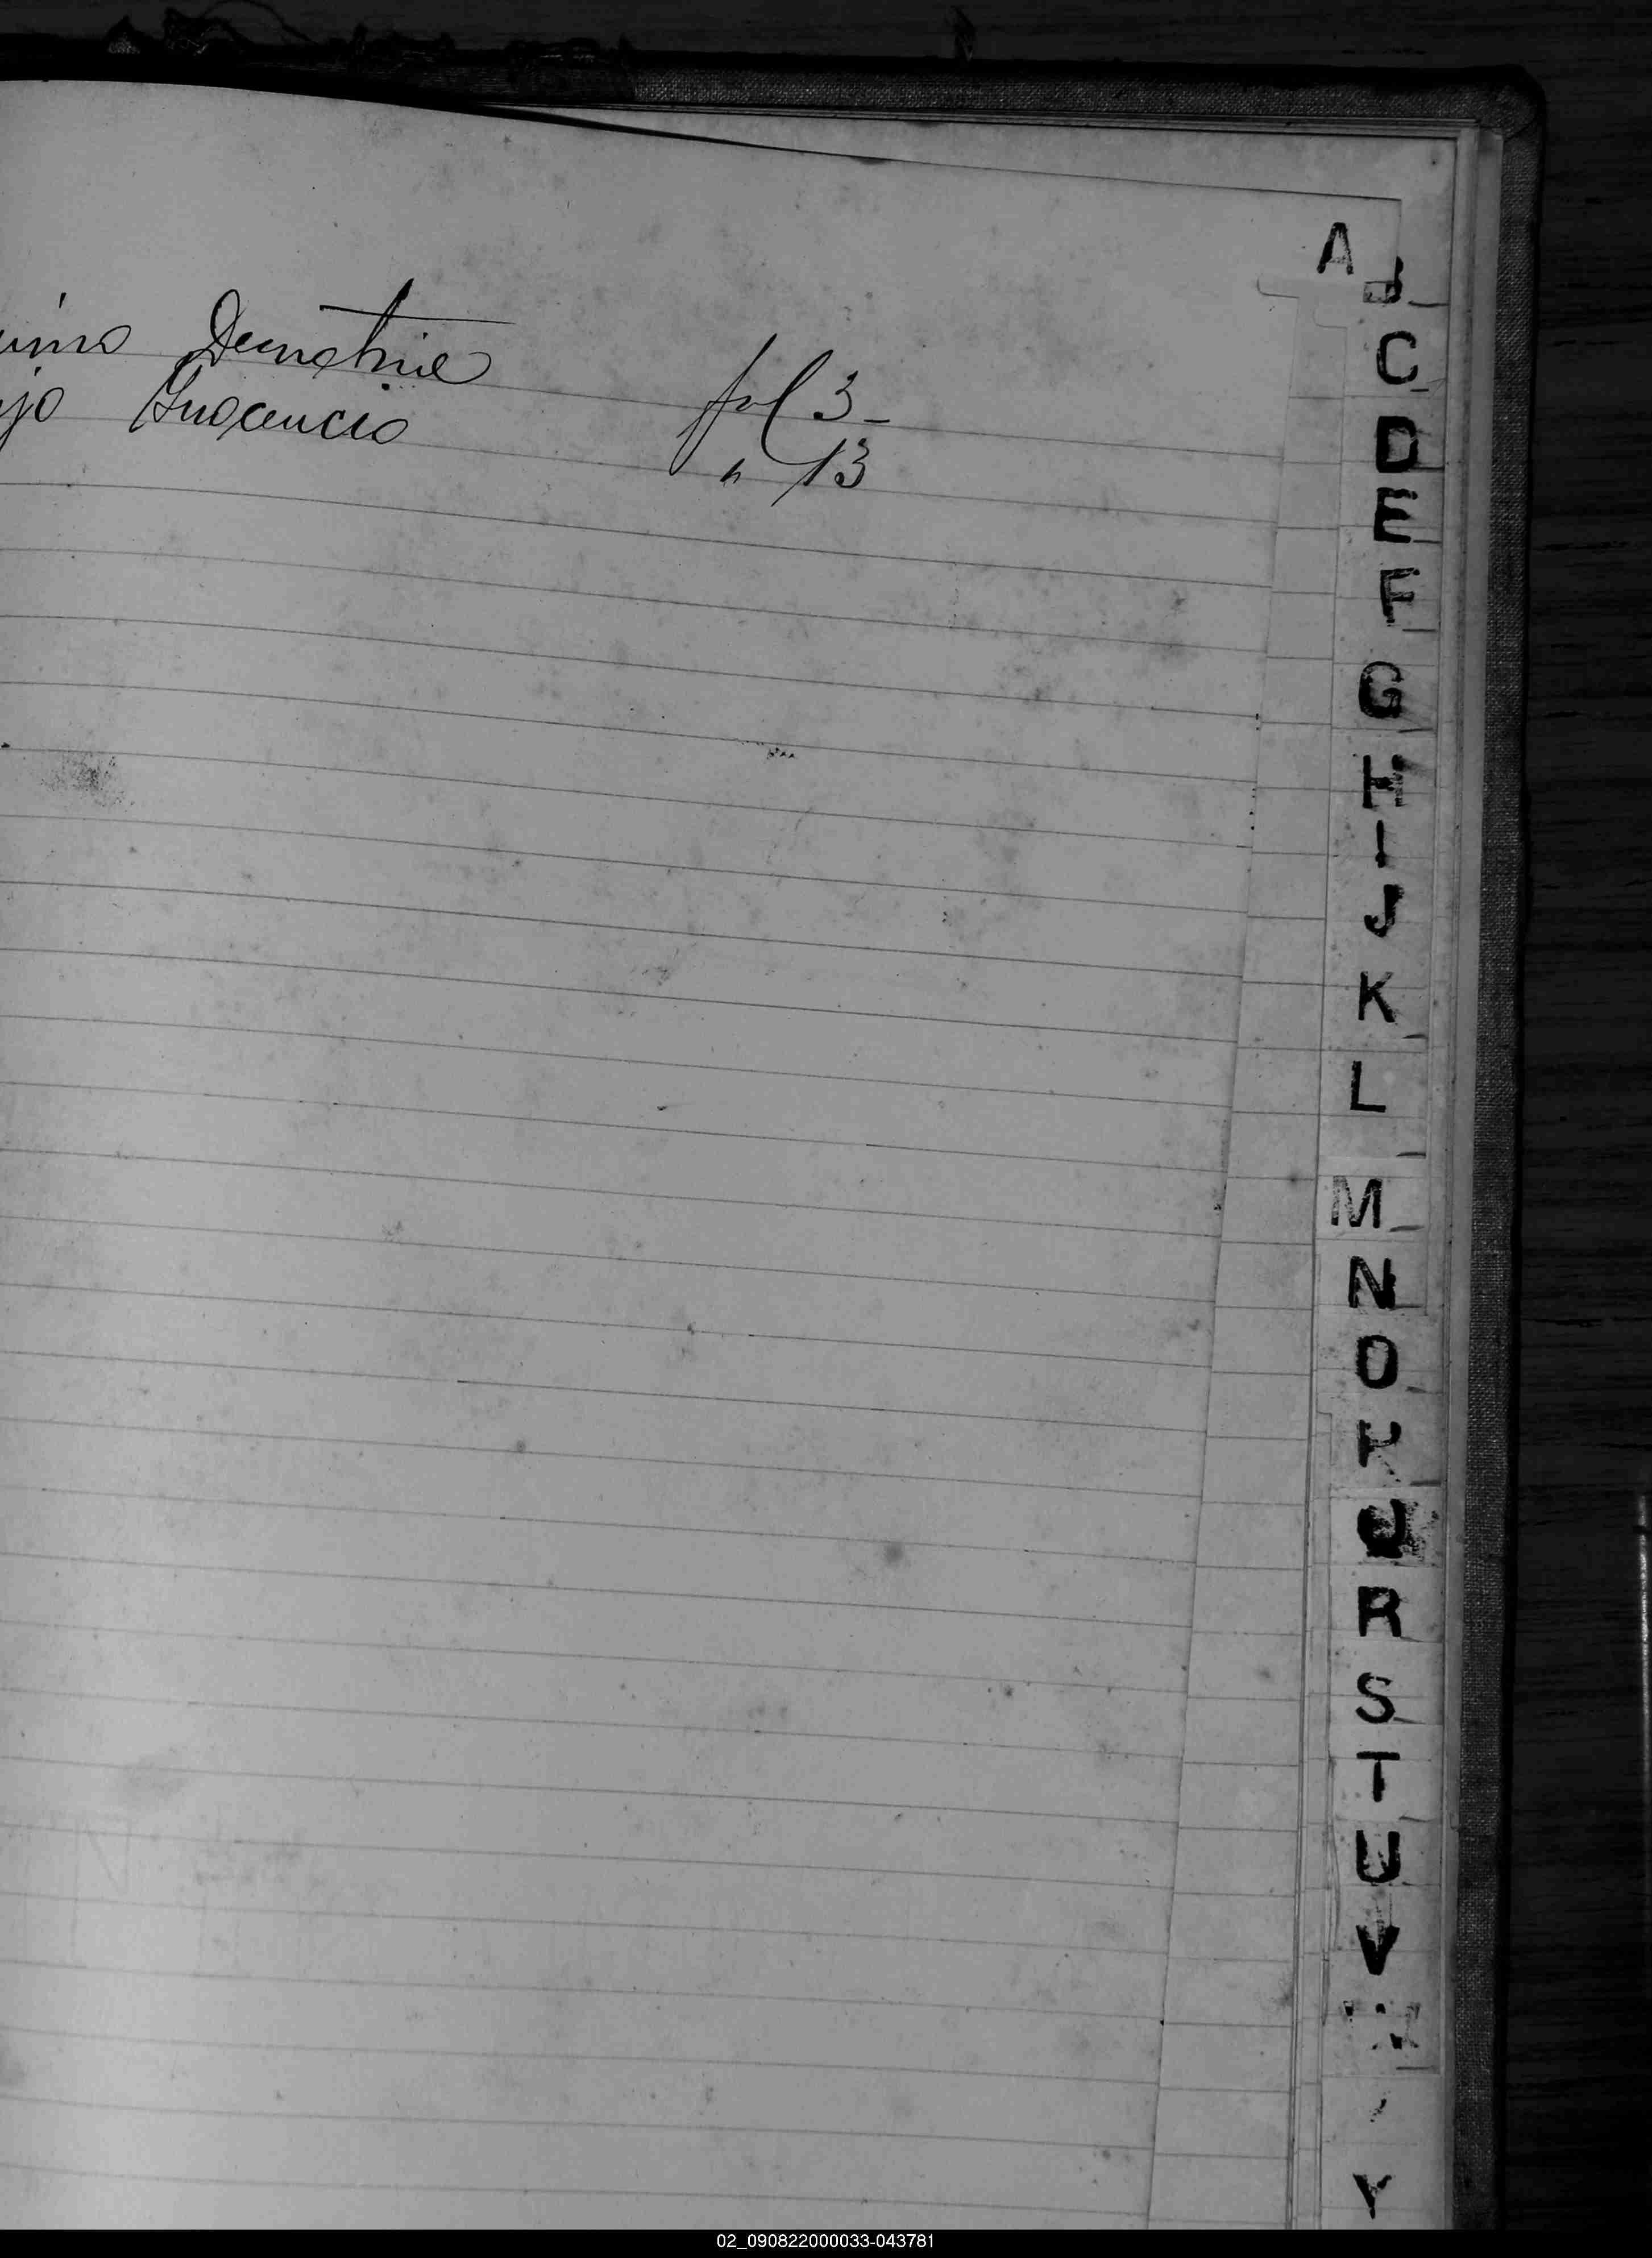 Demetrio fol 3-
Inocencio " 13
A
B
C
D
E
F
G
H
I
J
K
L
M
N
O
P
Q
R
S
T
U
V
Y
02_090822000033-043781